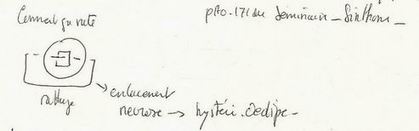 Comment ça rate
pko.171 du Séminaire - Sinthome -
rattage
enlacement
nevrose → hystéri. Oedipe -